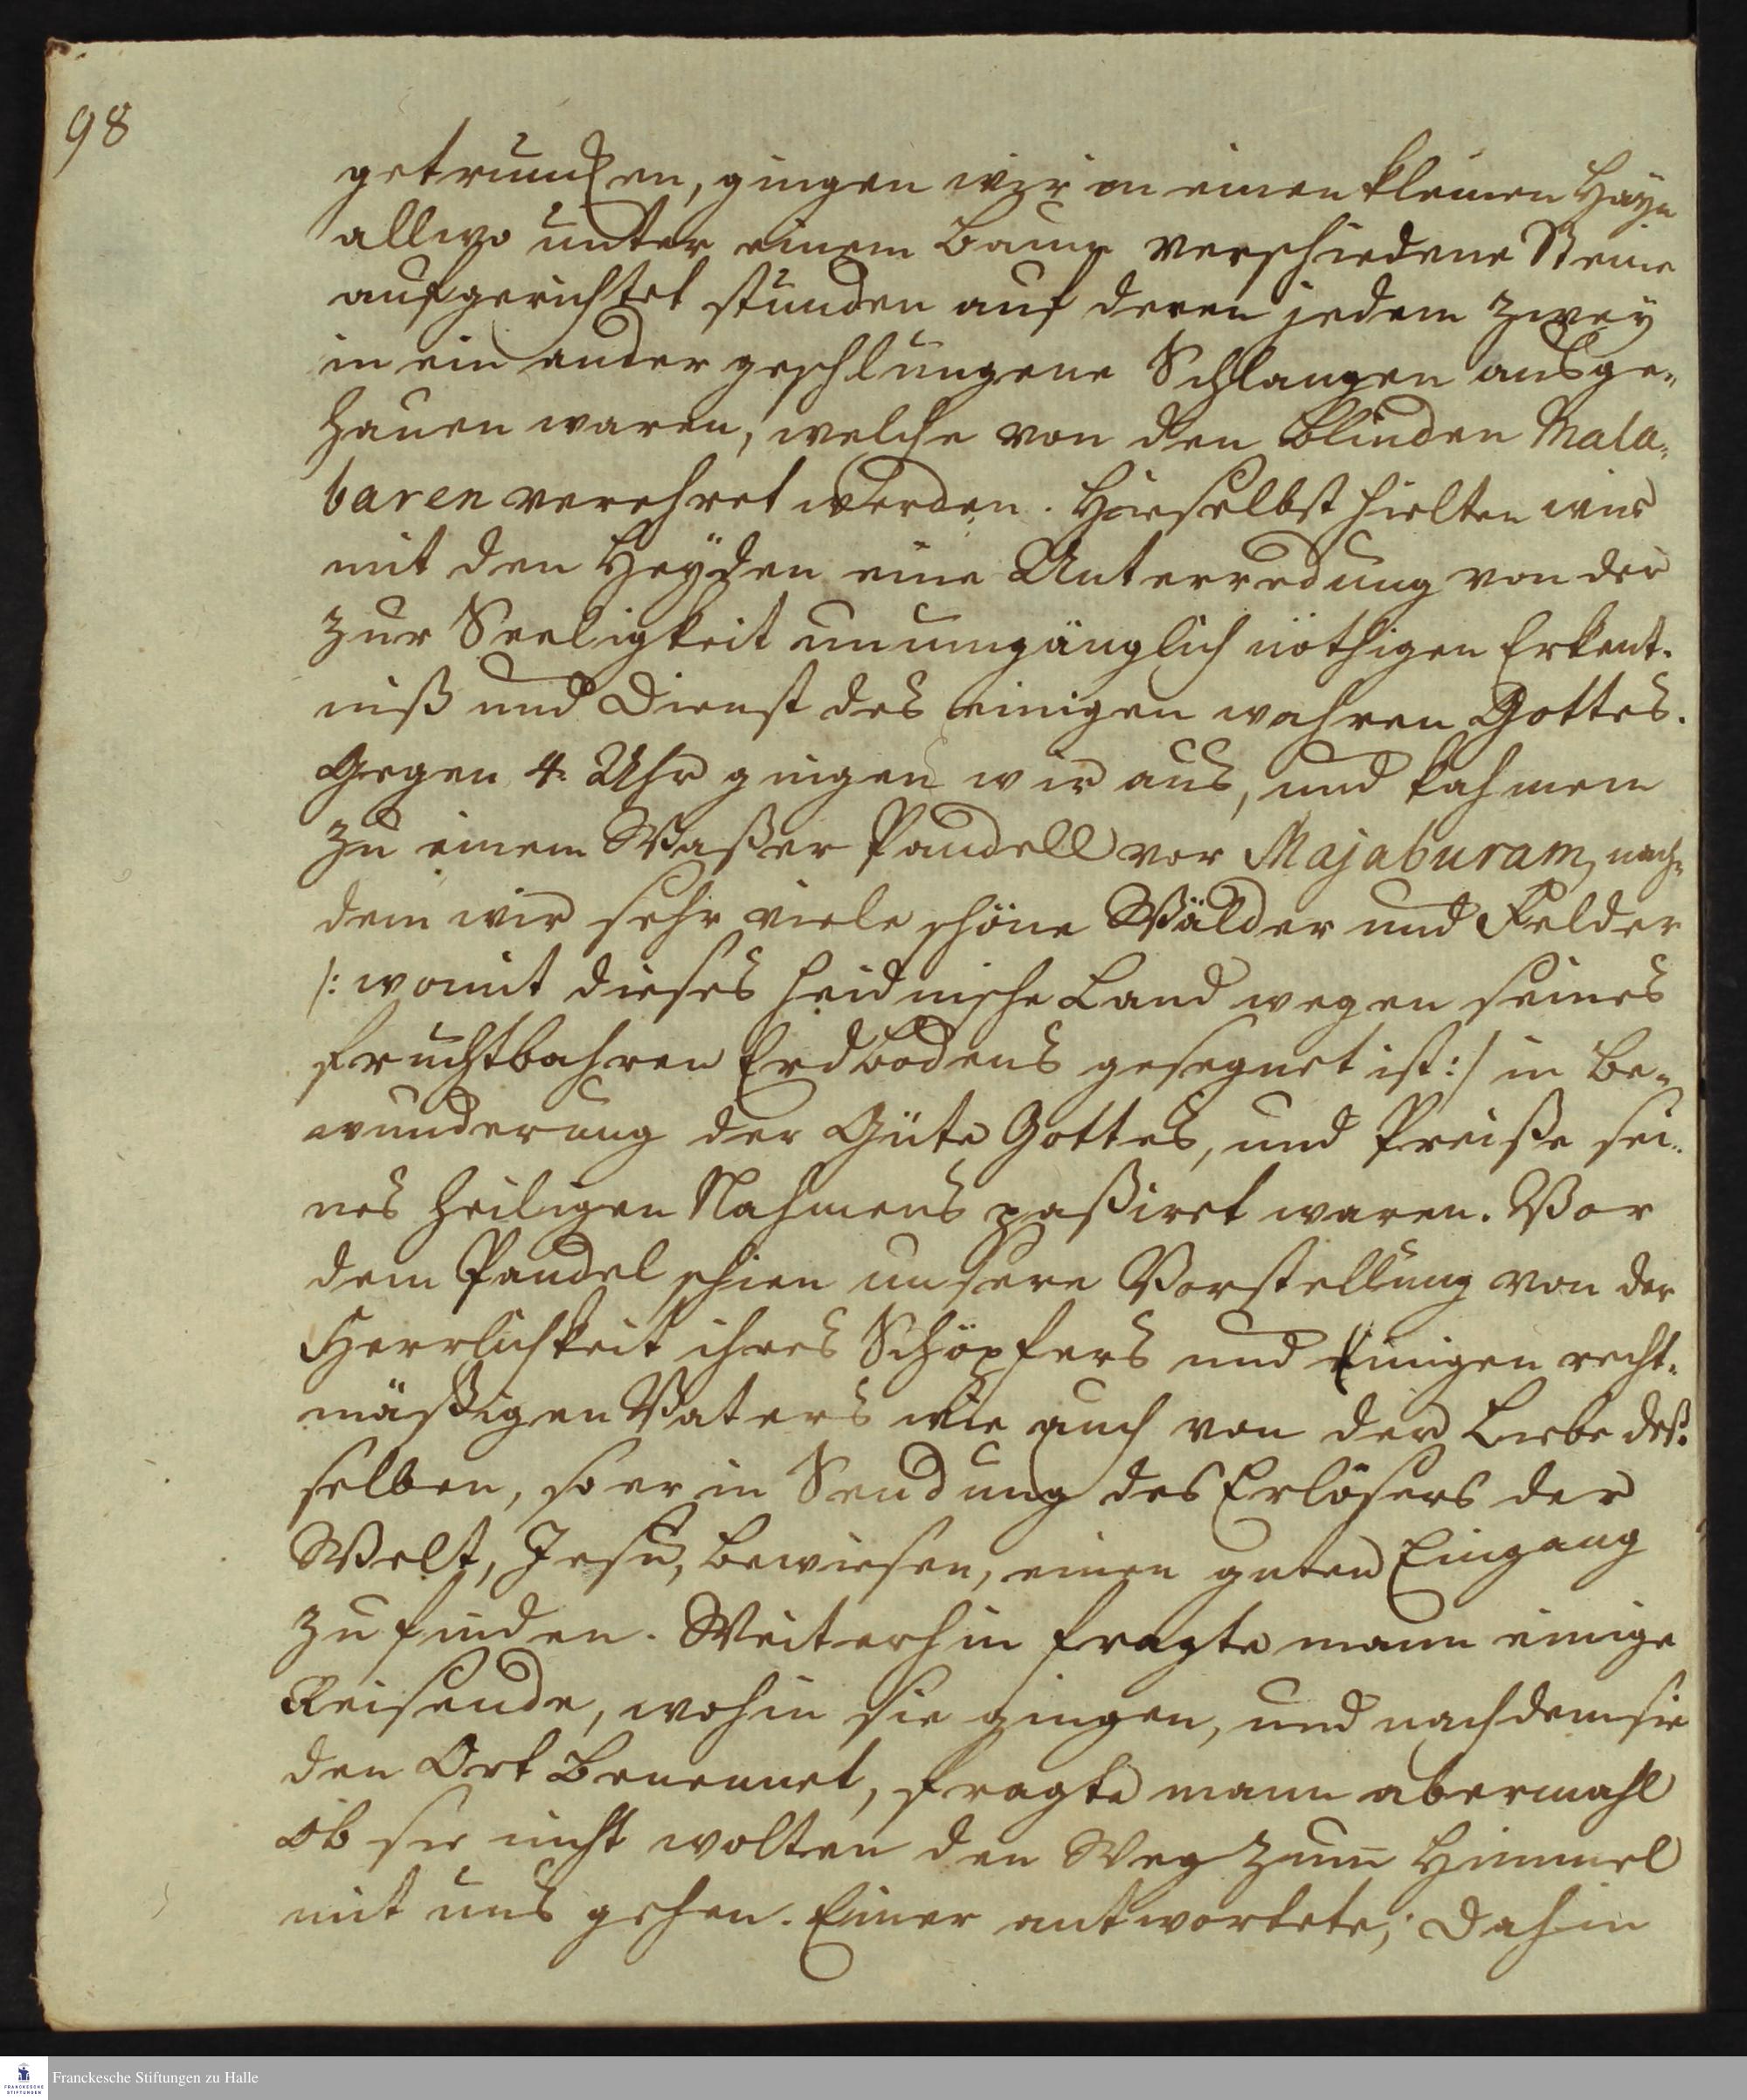 98
getruncken, gingen wir in einen kleinen Hayn
allwo unter einem Baume verschiedene Steine
aufgerichtet stunden auf deren jedem zwey
in ein ander geschlungene Schlangen ausge-
hauen waren, welche von den blinden Mala-
baren verehret werden. Hieselbst hielten wir
mit den Heyden eine Unterredung von der
zur Seeligkeit unumgänglich nöthigen Erkent-
niß und Dienst des einigen wahren Gottes.
Gegen 4. Uhr gingen wir aus, und kahmen
zu einem Waßer Pandell vor Majaburam, nach-
dem wir sehr viele schöne Wälder und Felder
/: womit dieses heidnische Land wegen seines
fruchtbahren Erdbodens gesegnet ist :/ in Be-
wunderung der Güte Gottes, und Preiße sei-
nes heiligen Nahmens paßiret waren. Vor
dem Pandel schien unsere Vorstellung von der
Herrlichkeit ihres Schöpfers und Einigen recht-
mäßigen Vaters wie auch von der Liebe deß-
selben, so er in Sendung des Erlösers der
Welt, Jesu, bewiesen, einen guten Eingang
zu finden. Weiterhin fragte mann einige
Reisende, wohin sie gingen, und nachdem sie
den Ort benennet, fragte mann abermahl
ob sie nicht wolten den Weg zum Himmel
mit uns gehen. Einer antwortete; Dahin
Franckesche Stiftungen zu Halle
FRANCKESCHE
STIFTUNGEN